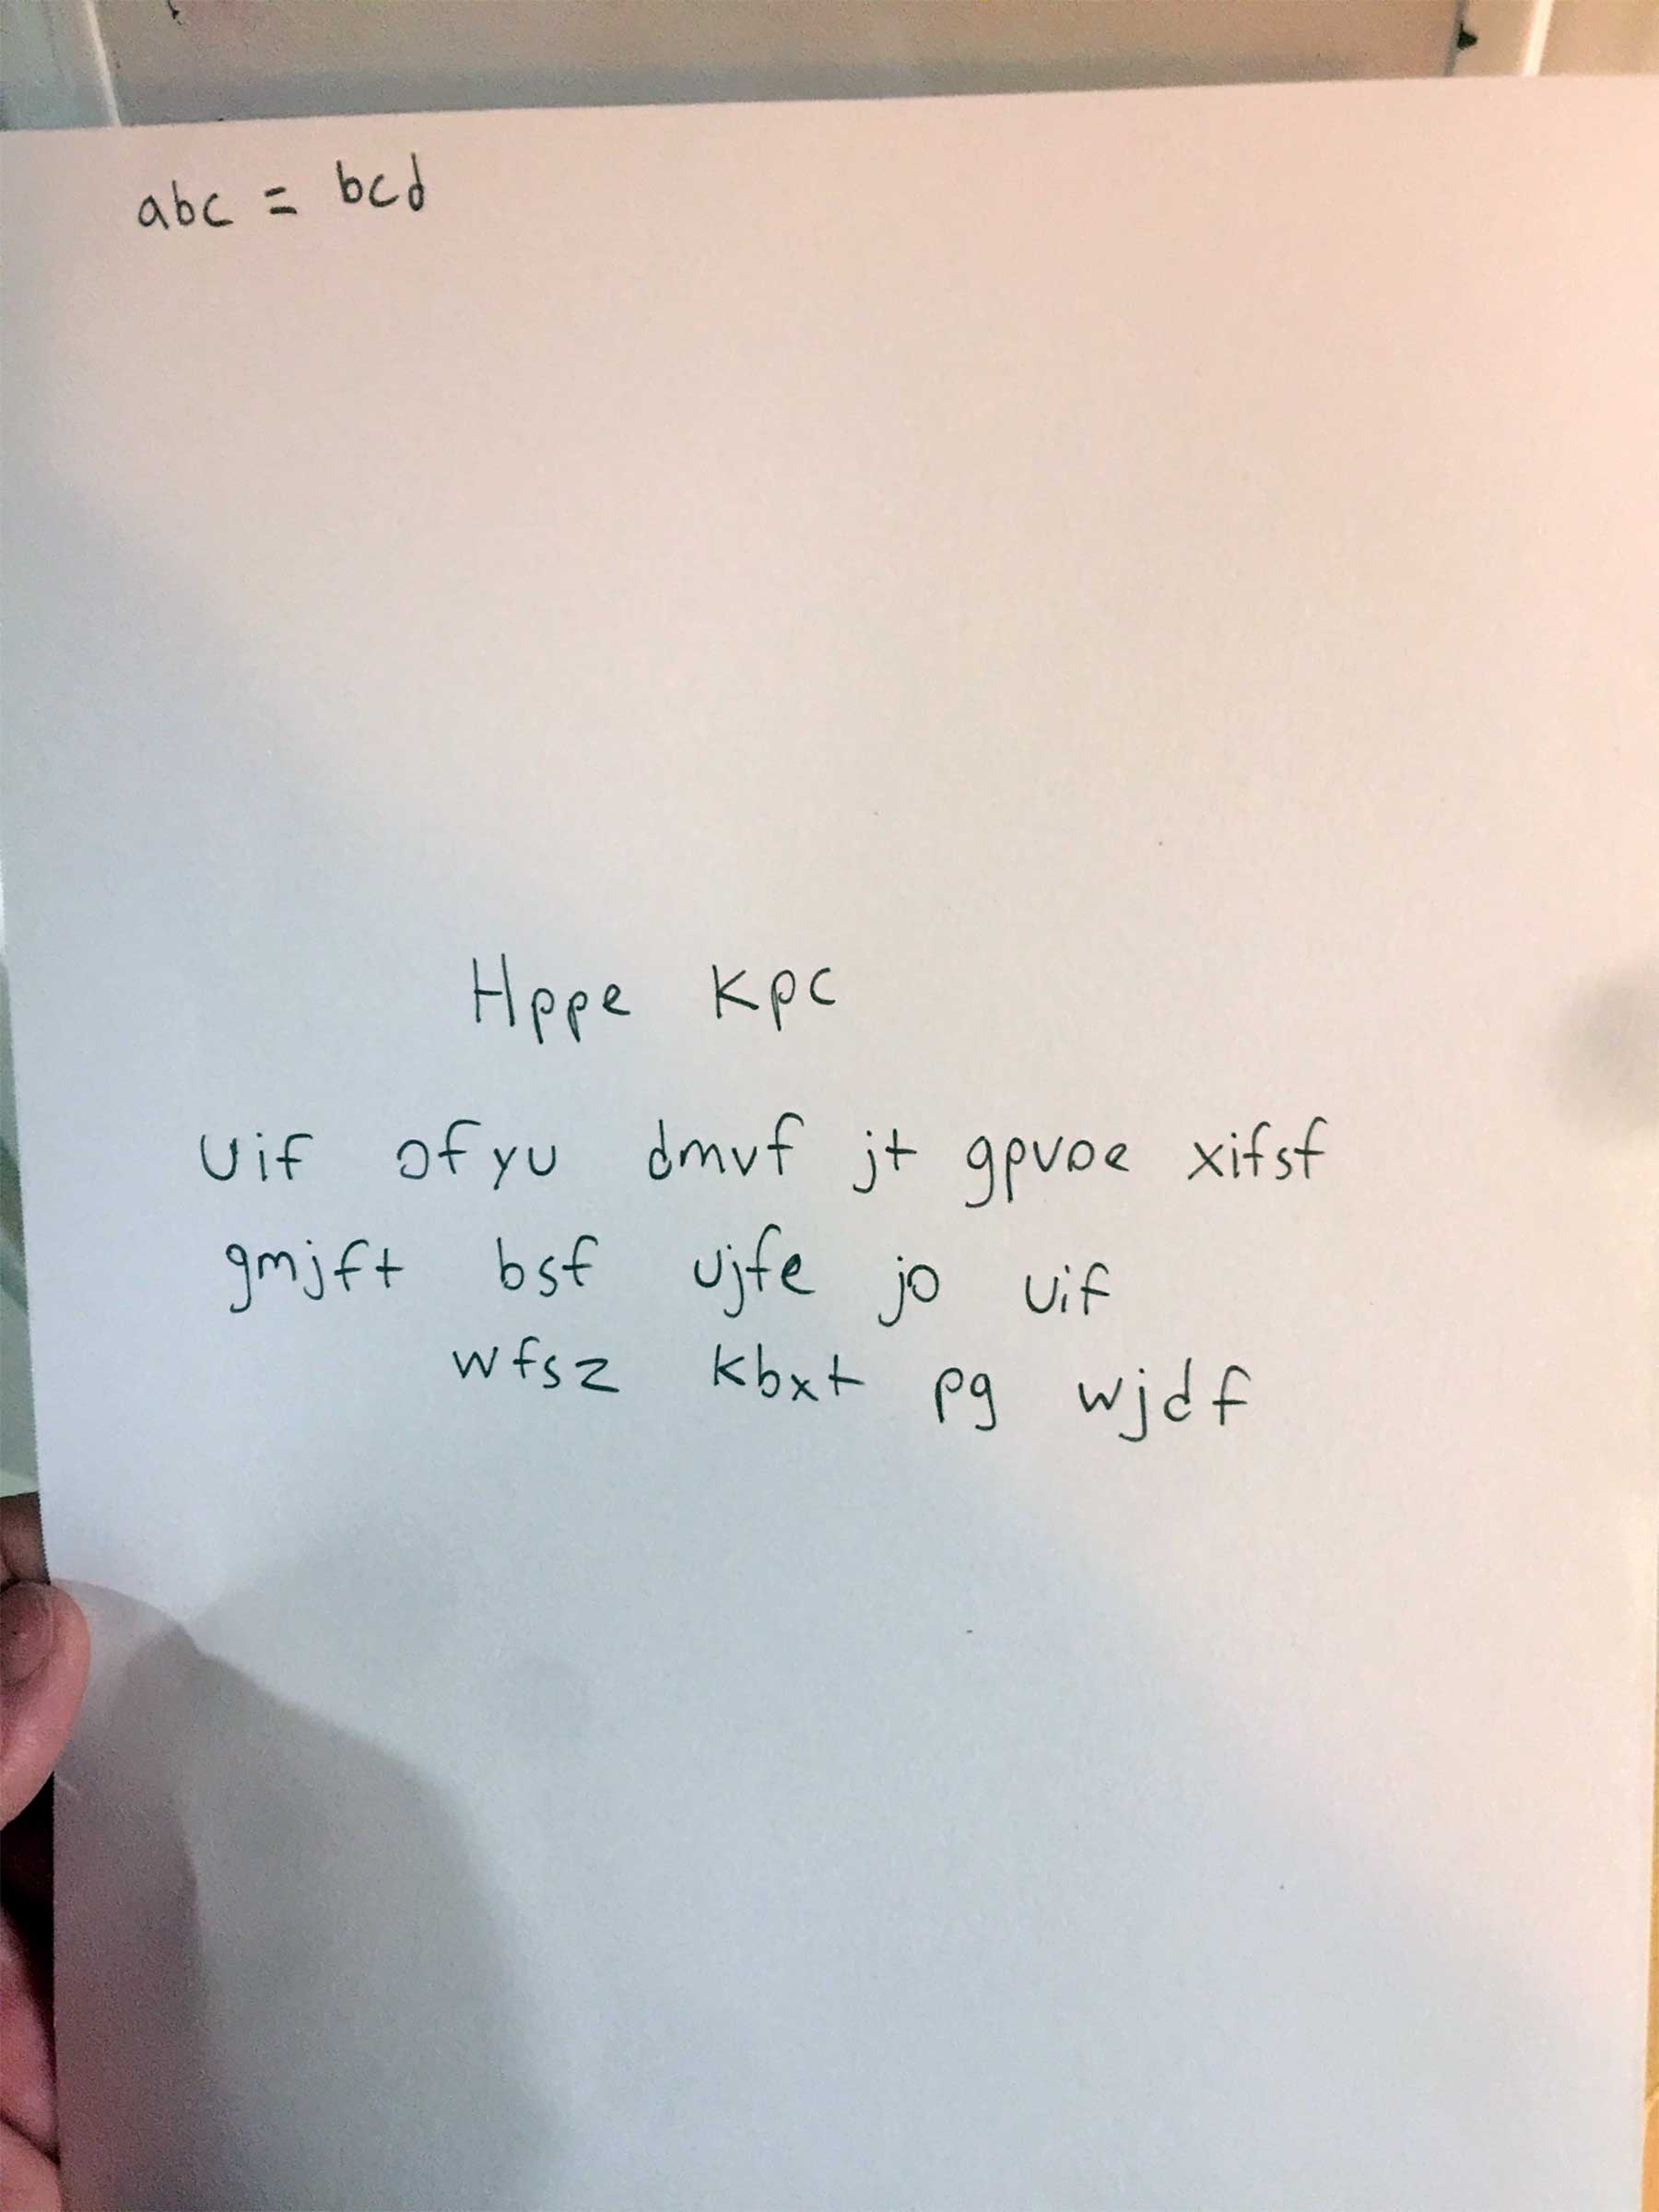 abc = bcd
Hppe kpc
Uif ofyu dmvf jt gpvoe xifsf
gmjft bsf ujfe jo uif
wfsz kbxt pg wjdf